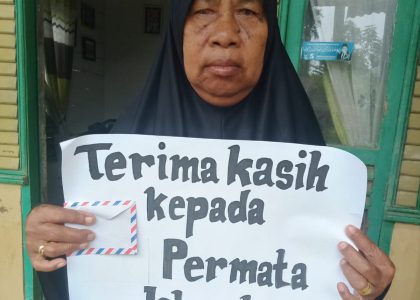 Terima kasih
kepada
Permata